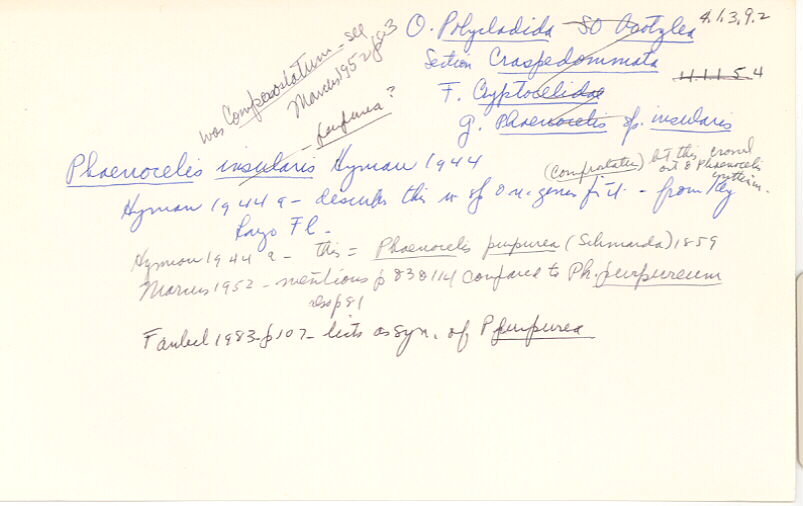 4.1.3.9.2
O. Polycladida SO Acotylea
Section Craspedommata
4.1.1.5.4
F. Cryptocelidae
g. Phaenocelis sp. insularis
was Compsostatum - see
Marcus 1952 p 83
- purpurea?
Phaenocelis insularis Hyman 1944
(Comprostatum) but this crossed
out & Phaenocelis
written.
Hyman 1944 a - describes this n. sp & n. genus - from Key
Largo Fl.
Hyman 1944 a - this = Phaenocelis purpurea (Schmarda) 1859
Marcus 1952 - mentions p 83 & 114 compared to Ph. purpureum
also p 81
Faubel 1983 - p 107 - lists as syn. of P purpurea